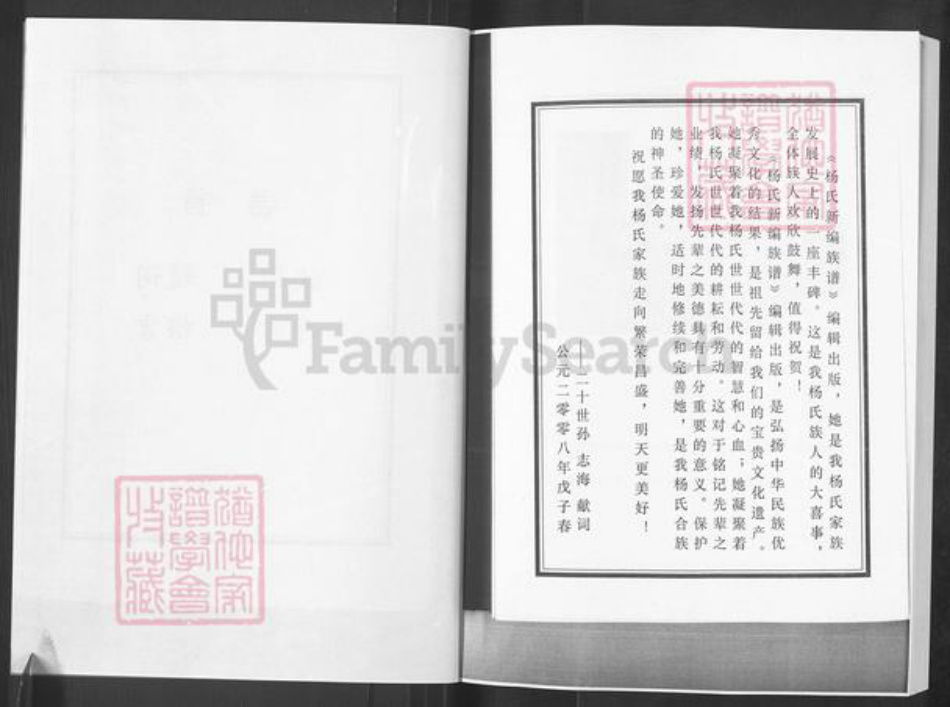 《杨氏新编族谱》编辑出版，她是我杨氏家族
发展史上的一座丰碑。这是我杨氏族人的大喜事，
全体族人欢欣鼓舞，值得祝贺！
《杨氏新编族谱》编辑出版，是弘扬中华民族优
秀文化的结果，是祖先留给我们的宝贵文化遗产。
她凝聚着我杨氏世世代代的智慧和心血；她凝聚着
我杨氏世世代代的耕耘和劳动。这对于铭记先辈之
业绩，发扬先辈之美德具有十分重要的意义。保护
她，珍爱她，适时地修续和完善她，是我杨氏合族
的神圣使命。
祝愿我杨氏家族走向繁荣昌盛，明天更美好！
二十世孙 志海 献词
公元二零零八年戊子春
FamilySearch